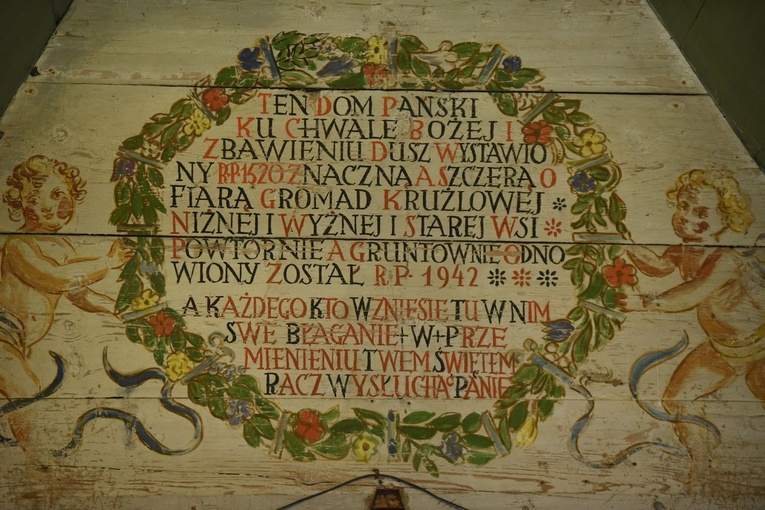 TEN DOM PAŃSKI
KU CHWALE BOŻEJ I
ZBAWIENIU DUSZ WYSTAWIO
NY R.P. 1520 ZNACZNĄ A SZCZERĄ O
FIARĄ GROMAD KRUŻLOWEJ *
NIŻNEJ I WYŻNEJ I STAREJ WSI *
POWTÓRNIE A GRUNTOWNIE ODNO
WIONY ZOSTAŁ R.P. 1942 * * *
A KAŻDEGO KTO WZNIESIE TU W NIM
SWE BŁAGANIE + W + PRZE
MIENIENIU TWEM ŚWIĘTEM
RACZ WYSŁUCHAĆ PANIE